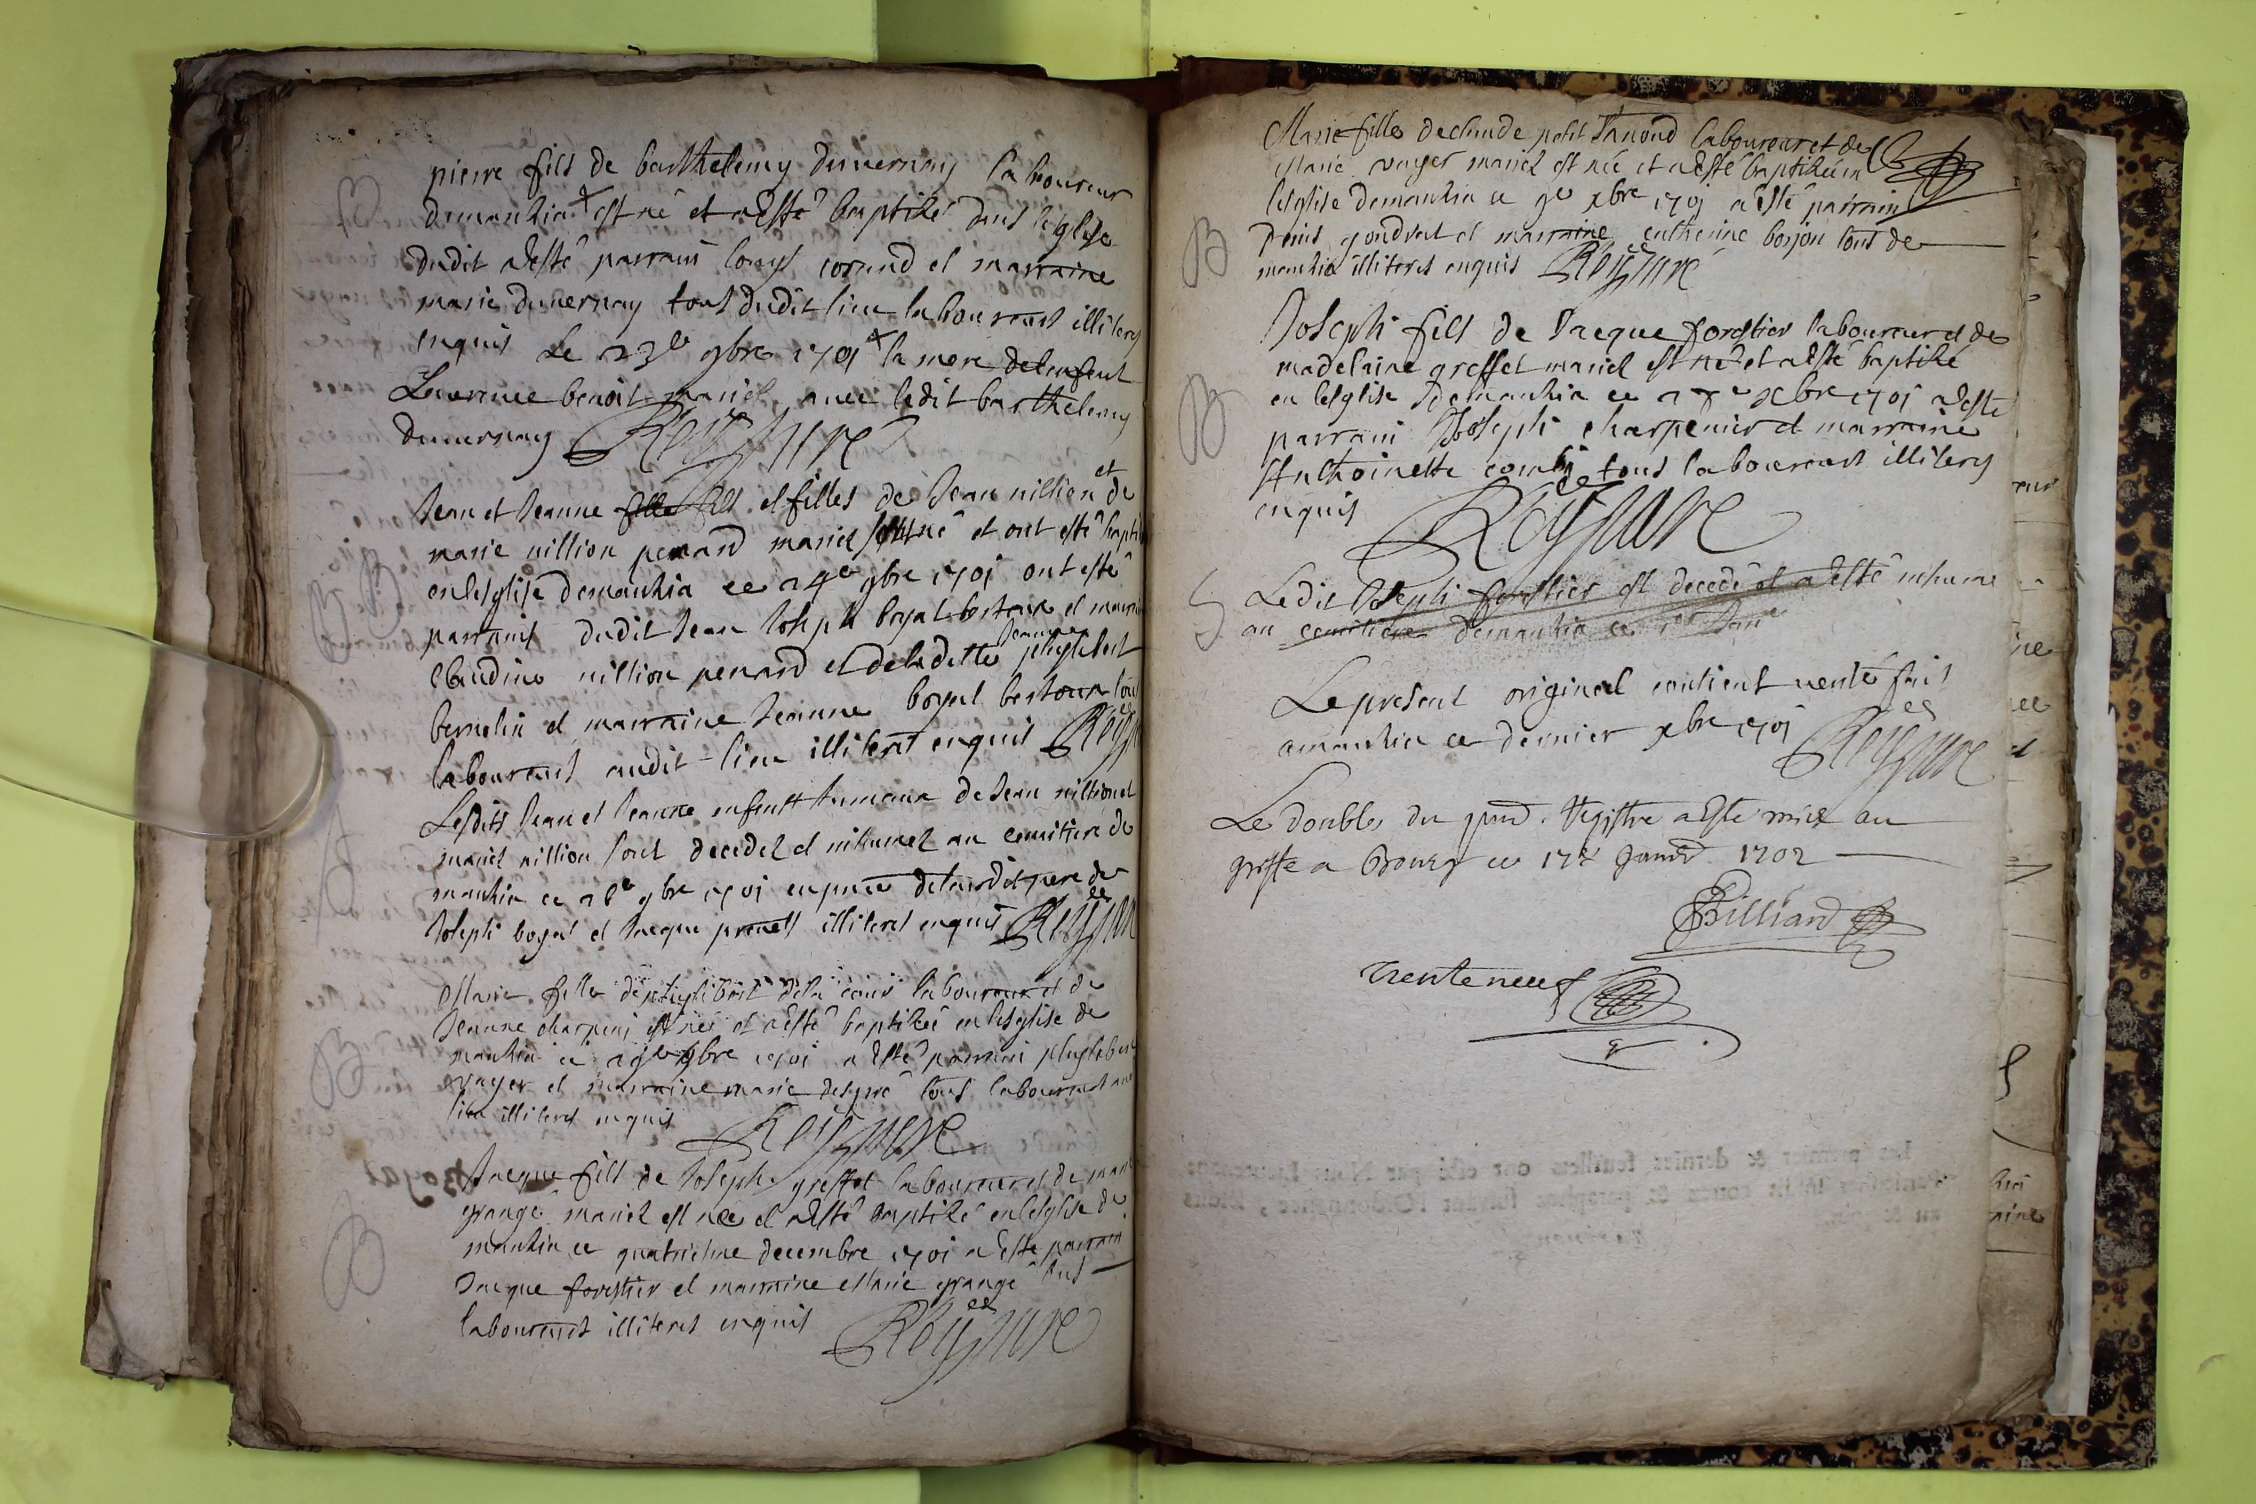 pierre fils de barthelemy duuernay laboureur
demanhia + est né et a esté baptisé dans leglise
dudit a esté parrain louys corand et marraine
marie duuernay tous dudit lieu laboureurs illiterés
enquis Le 23e 9bre 1701 + la mere delenfent
Laurence benoit mariés auec ledit barthelemy
duuernay Reyssure
B
Jean et Jeanne fils et filles de Jean nillion et de
marie nillion penard mariés sont né et ont esté bapti
en lesglise demanhia ce 24e 9bre 1701 ont esté
parrains dudit Jean Joseph boyat bertoux et marrai
Claudine nillion penard et deladitte Jeanne philibert
bernolin et marraine Jeanne boyat bertoux tous
laboureurs audit lieu illiterés enquis Reyss
B B
Lesdits Jean et Jeanne enfents Jumeaux de Jean nillion et
marie nillion sont decedes et inhumes au cemitiere de
manhia ce 26e 9bre 1701 en pnce dudit pere de
Joseph boyat et Jacque illiterés enquis Reyssure
Marie fille de philibert dela cour laboureur et de
Jeanne charpeni est née et a esté baptisée en lesglise de
manhia ce 29e 9bre 1701 a esté parrain philibert
uayer et marraine marie despré tous laboureurs au
lieu illiterés enquis Reyssure
B
Jacque fils de Joseph greffet laboureur et de marie
grange mariés est née et a esté baptisé en lesglise de
manhia ce quatriesme decembre 1701 a esté parrain
Jacque forestier et marraine Marie grange tous
laboureurs illiterés enquis Reyssure
B
Marie fille de claude petit Janond laboureur et de
Marie uayer mariés est née et a esté baptisée en
lesglise demanhia ce 9e xbre 1701 a esté parrain
Denis gondrat et marraine catherine borjon tous de
manhia illiterés enquis Reyssure
B
Joseph fils de Jacque forestier laboureur et de
madelaine greffet mariés est né et a esté baptisé
en lesglise demanhia ce xbre 1701 a esté
parrain Joseph charpenier et marraine
Anthoinette combe tous laboureurs illiterés
enquis Reyssure
B
Ledit Joseph forestier est decedé et a esté inhumé
au cemitiere demanhia ce
S
Le present original contient uerité fait
amanhia ce dernier xbre 1701 Reyssure
Le double du pnt Registre a esté mise au
greffe a Bourg ce 17e Januier 1702
Billiard
trenteneuf